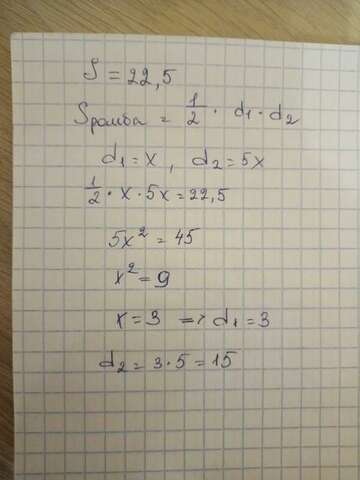 S = 22,5
Sромба = 1/2 · d1 · d2
d1 = x, d2 = 5x
1/2 · x · 5x = 22,5
5x² = 45
x² = 9
x = 3 => d1 = 3
d2 = 3 · 5 = 15